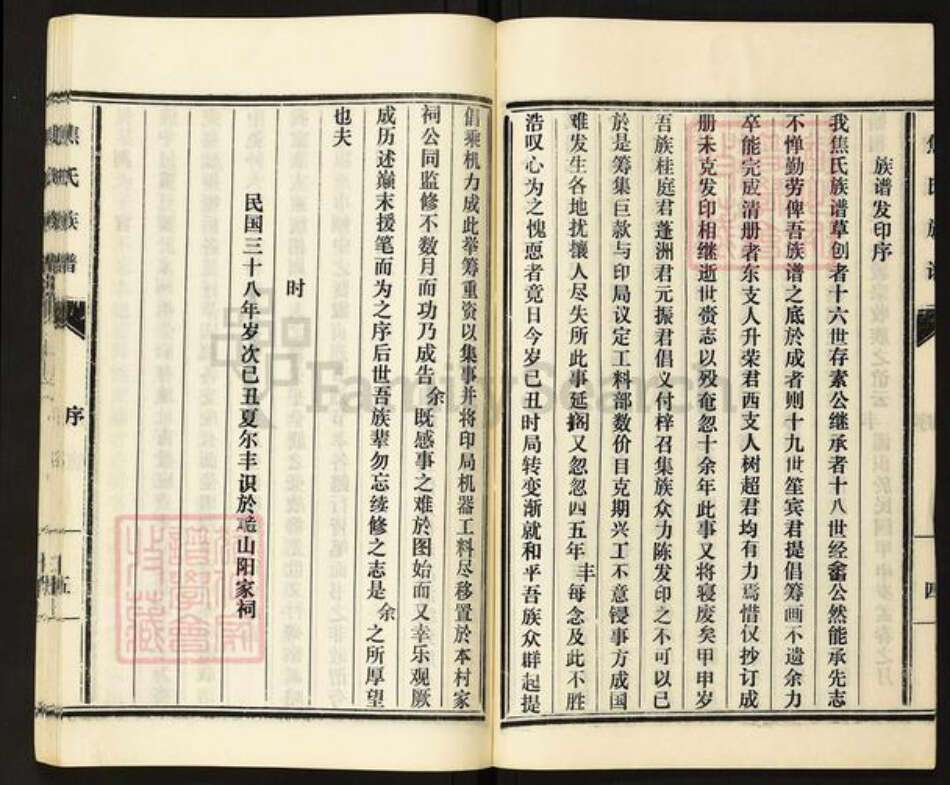 族谱发印序
我焦氏族谱草创者十六世存素公继承者十八世经畲公然能承先志
不惮勤劳俾吾族谱之底於成者则十九世笙宾君提倡筹画不遗余力
卒能完成清册者东支人升荣君西支人树超君均有力焉惜仅抄订成
册未克发印相继逝世赍志以殁奄忽十余年此事又将寝废矣甲申岁
吾族桂庭君蓬洲君元振君倡义付梓召集族众力陈发印之不可以已
於是筹集巨款与印局议定工料部数价目克期兴工不意锓事方成国
难发生各地扰攘人尽失所此事延搁又忽忽四五年丰每念及此不胜
浩叹心为之愧恧者竟日今岁己丑时局转变渐就和平吾族众群起提
四
倡乘机力成此举筹重资以集事并将印局机器工料尽移置於本村家
祠公同监修不数月而功乃成告余既感事之难於图始而又幸乐观厥
成历述巅末援笔而为之序后世吾族辈勿忘续修之志是余之所厚望
也夫
时
民国三十八年岁次己丑夏尔丰识於山阳家祠
焦氏族谱
序
五
FamilySearch